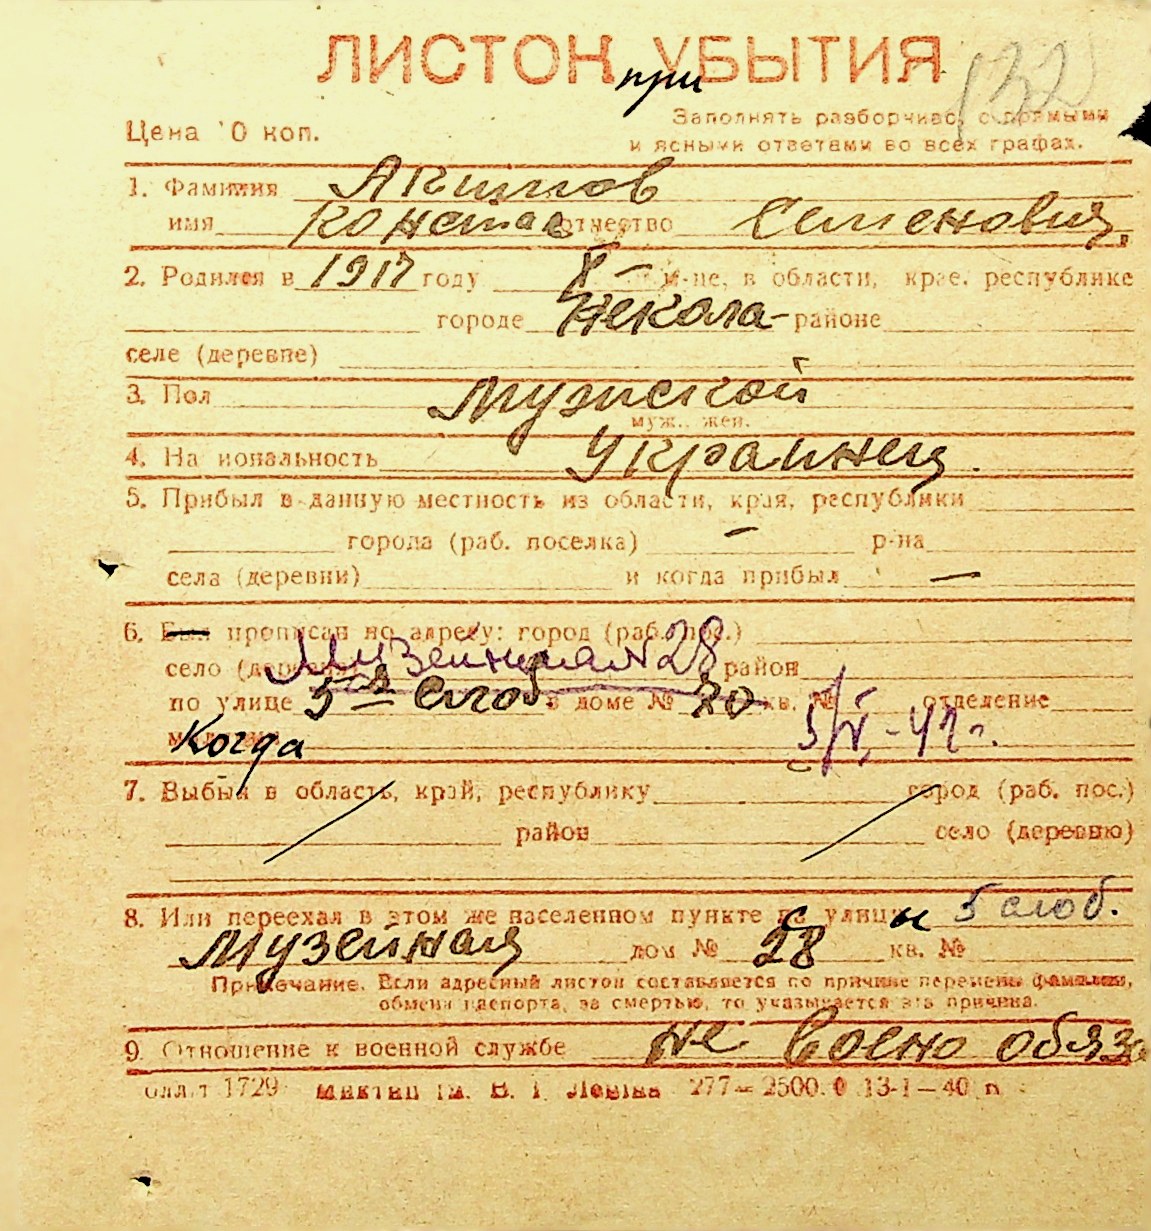 ЛИСТОК УБЫТИЯ
при
132
Цена 10 коп.
Заполнять разборчиво, с прямыми
и ясными ответами во всех графах.
1. Фамилия Акимов
имя Констан отчество Семенович,
2. Родился в 1917 году X – м-це, в области, крае, республике
городе Никола- районе
селе (деревне)
3. Пол Мужской
муж., жен.
4. Национальность Украинец.
5. Прибыл в данную местность из области, края, республики
города (раб. поселка) – р-на
села (деревни) и когда прибыл –
6. Был прописан по адресу: город (раб. пос.)
село (деревня) Музейная № 28 район
по улице 5-я слоб. в доме № 20 кв. № отделение
Когда 5/V-42 г.
7. Выбыл в область, край, республику город (раб. пос.)
район село (деревню)
8. Или переехал в этом же населенном пункте по улице 5 слоб.
Музейная дом № 28 кв. №
Примечание. Если адресный листок составляется по причине перемены фамилии,
обмена паспорта, за смертью, то указывается эта причина.
9. Отношение к военной службе не воено обяза
1729 им. В. И. Ленина 277—2500.0 13-I—40 г.